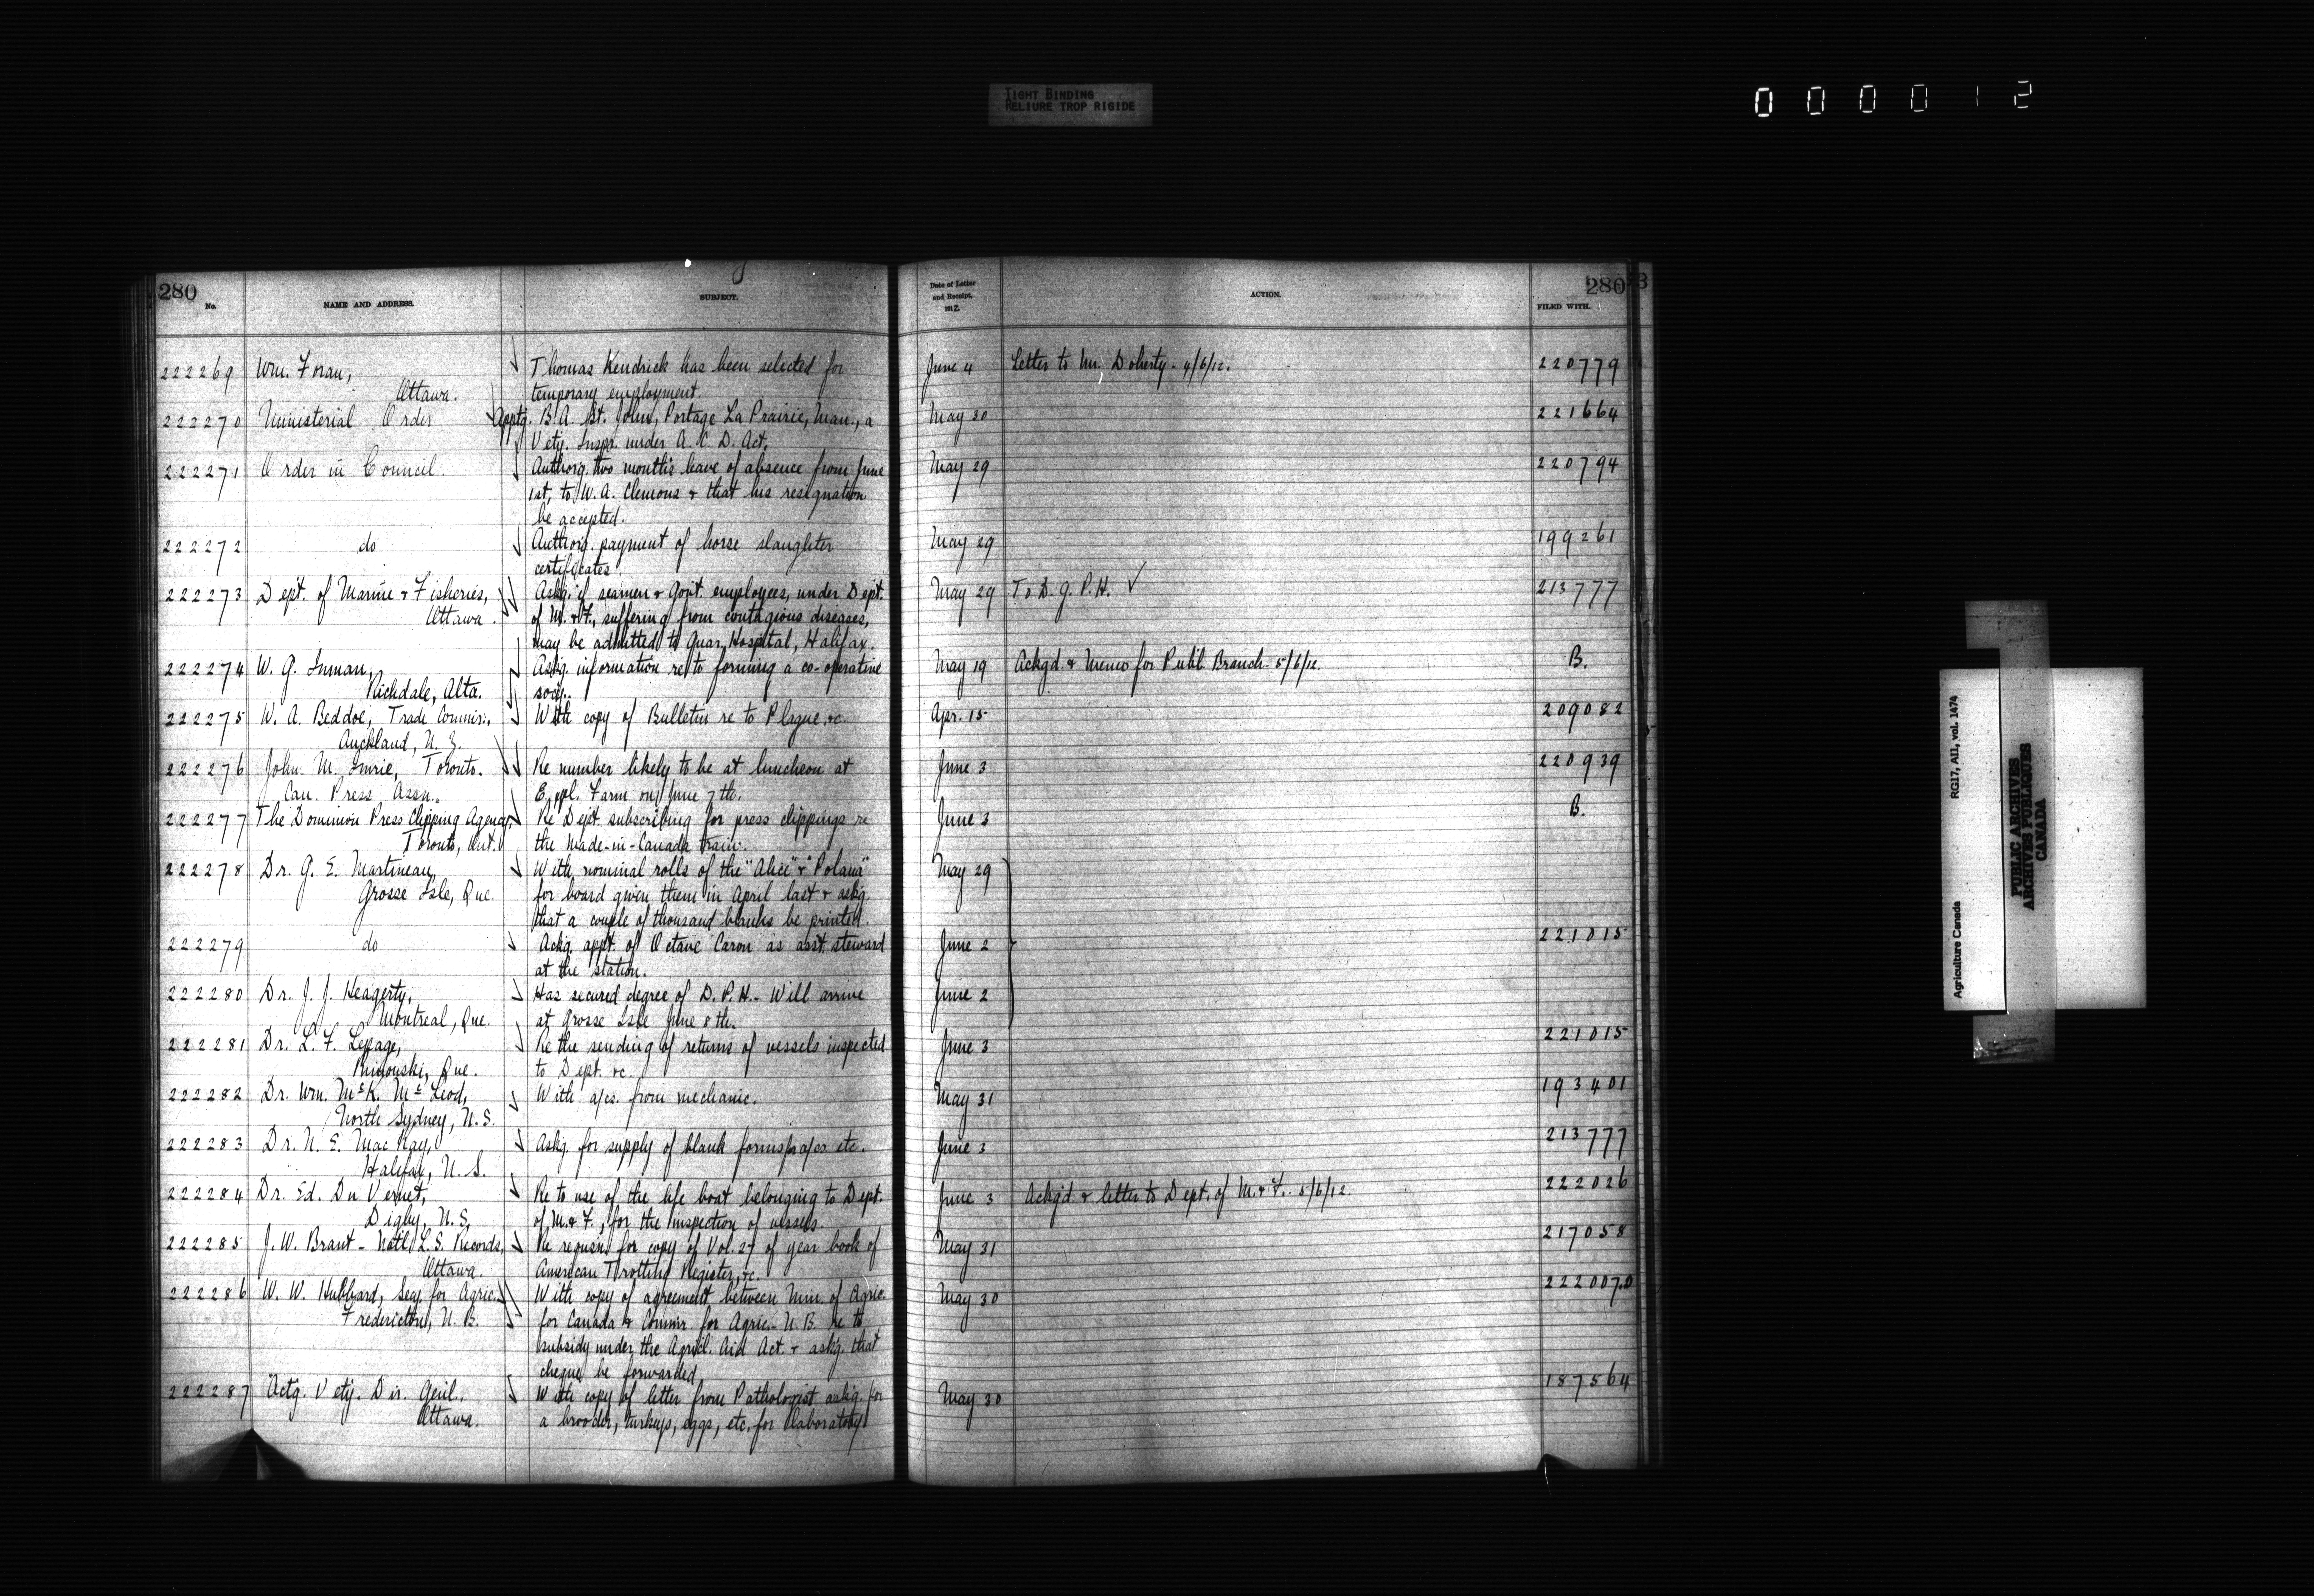 TIGHT BINDING
RELIURE TROP RIGIDE
000012
280
No.
NAME AND ADDRESS.
SUBJECT.
Date of Letter
and Receipt.
1912.
ACTION.
280
FILED WITH.
222269 Wm. Foran, Thomas Kendrick has been selected for June 4 Letter to Mr. Doherty - 4/6/12. 220779
Ottawa. temporary employment.
222270 Ministerial Order Apptg. B. A. St. John, Portage La Prairie, Man., a May 30 221664
Vety. Inspr. under A. C. D. Act.
222271 Order in Council. Authorg. two months leave of absence from June May 29 220794
1st, to W. A. Clemons & that his resignation
be accepted.
222272 do Authorg. payment of horse slaughter May 29 199261
certificates.
222273 Dept. of Marine & Fisheries, Askg. if seamen & Govt. employees, under Dept. May 29 To D. G. P. H. ✓ 213777
Ottawa. of M. & F., suffering from contagious diseases,
may be admitted to Quar. Hospital, Halifax.
222274 W. G. Inman, Askg. information re to forming a co-operative May 19 Ackgd. & Memo for Publ. Branch. 5/6/12. B.
Richdale, Alta. socy.
222275 W. A. Beddoe, Trade Commsr., With copy of Bulletin re to Plague, &c. Apr. 15 209082
Auckland, N. Z.
222276 John M. Imrie, Toronto. Re number likely to be at luncheon at June 3 220939
Can. Press Assn. Expl. Farm on June 7th.
222277 The Dominion Press Clipping Agency, Re Dept. subscribing for press clippings re June 3 B.
Toronto, Ont. the Made-in-Canada train.
222278 Dr. G. E. Martineau, With nominal rolls of the "Alice" & "Polana" May 29
Grosse Isle, Que. for board given them in April last & askg.
that a couple of thousand blanks be printed.
222279 do Ackg. appt. of Octave Caron as asst. steward June 2 221015
at the station.
222280 Dr. J. J. Heagerty, Has secured degree of D. P. H. - Will arrive June 2
Montreal, Que. at Grosse Isle June 8th.
222281 Dr. L. F. Lepage, Re the sending of returns of vessels inspected June 3 221015
Rimouski, Que. to Dept. &c.
222282 Dr. Wm. McK. McLeod, With a/cs. from mechanic. May 31 193401
North Sydney, N. S.
222283 Dr. N. E. MacKay, Askg. for supply of blank forms pa/cs. etc. June 3 213777
Halifax, N. S.
222284 Dr. Ed. Du Vernet, Re to use of the life boat belonging to Dept. June 3 Ackg'd. & letter to Dept. of M. & F. 5/6/12. 222026
Digby, N. S. of M. & F., for the inspection of vessels.
222285 J. W. Brant - Natl. L. S. Records, Re requsn. for copy of Vol. 27 of year book of May 31 217058
Ottawa. American Trotting Register, &c.
222286 W. W. Hubbard, Secy. for Agric. With copy of agreement between Min. of Agric. May 30 222007.0
Fredericton, N. B. for Canada & Commr. for Agric. - N. B. re to
subsidy under the Agricl. Aid Act. & askg. that
cheque be forwarded
222287 Actg. Vety. Dir. Genl., With copy of letter from Pathologist askg. for May 30 187564
Ottawa. a brooder, turkeys, eggs, etc. for laboratory
Agriculture Canada
RG17, AII, vol. 1474
PUBLIC ARCHIVES
ARCHIVES PUBLIQUES
CANADA